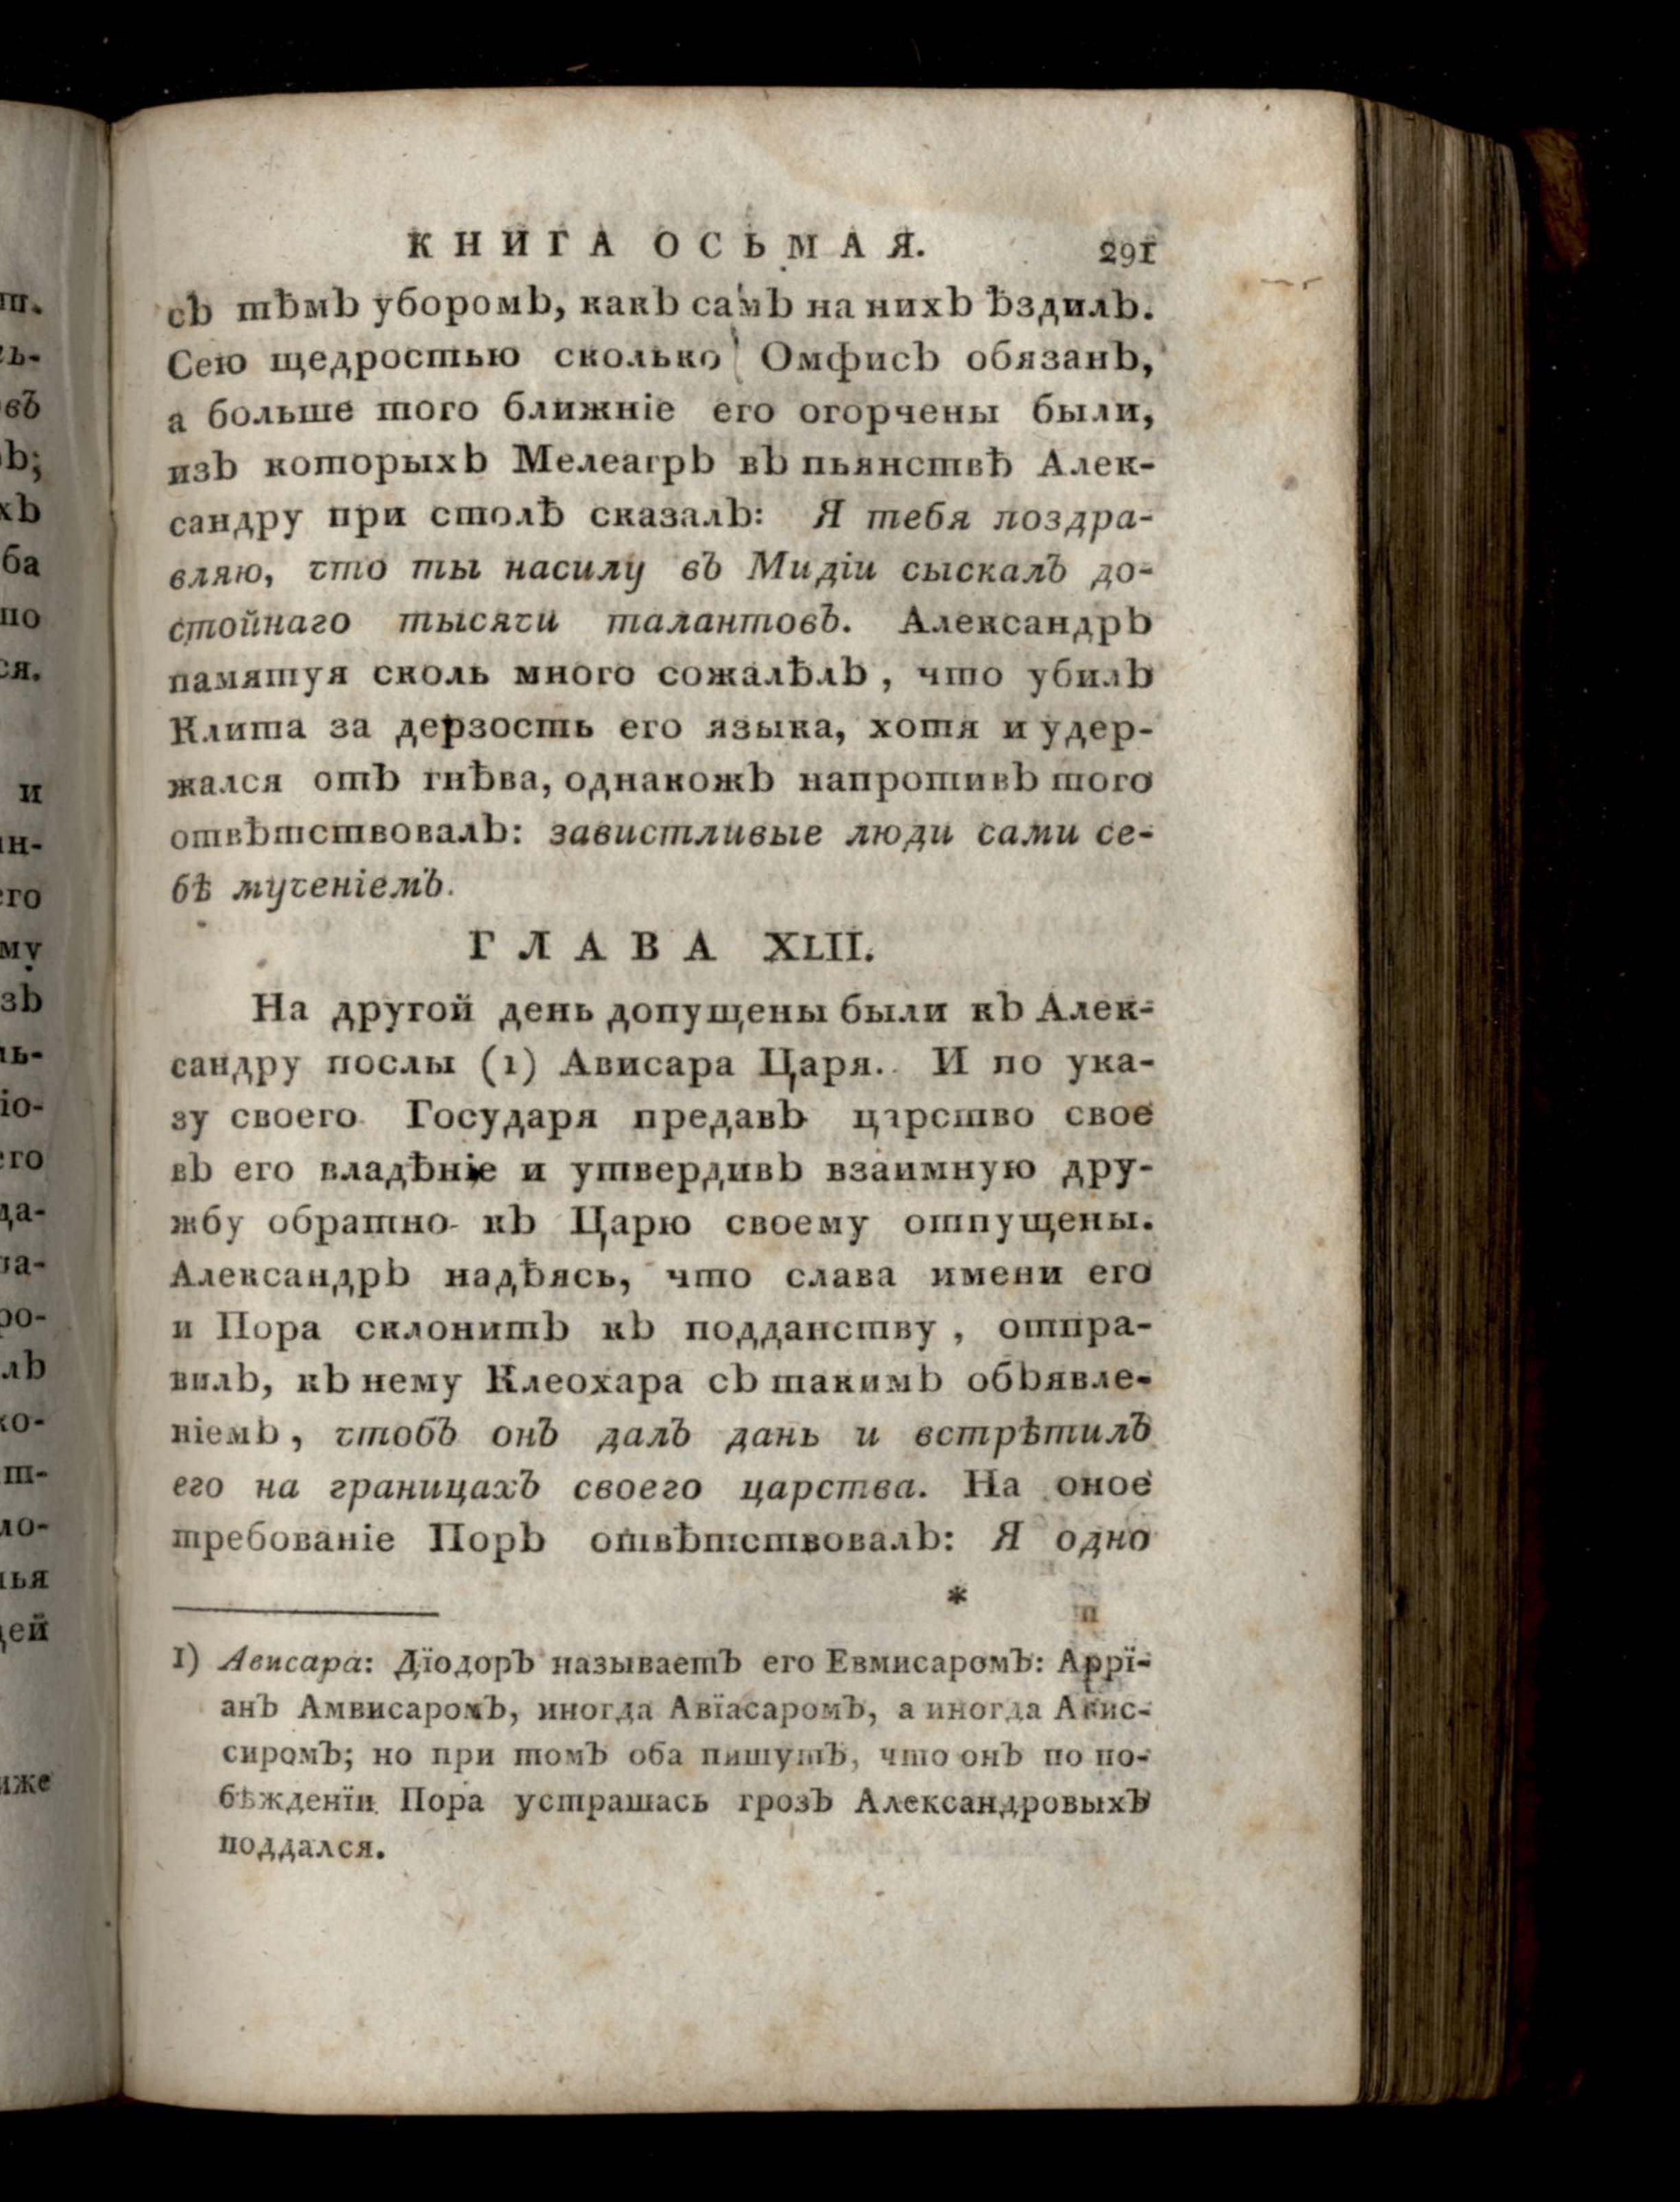 КНИГА ОСЬМАЯ. 291
съ тѣмъ уборомъ, какъ самъ на нихъ ѣздилъ.
Сею щедростью сколько Омфисъ обязанъ,
а больше того ближніе его огорчены были,
изъ которыхъ Мелеагръ въ пьянствѣ Алек-
сандру при столѣ сказалъ: Я тебя поздра-
вляю, что ты насилу въ Мидіи сыскалъ до-
стойнаго тысячи талантовъ. Александръ
памятуя сколь много сожалѣлъ, что убилъ
Клита за дерзость его языка, хотя и удер-
жался отъ гнѣва, однакожъ напротивъ того
отвѣтствовалъ: завистливые люди сами се-
бѣ мученіемъ.
ГЛАВА XLII.
На другой день допущены были къ Алек-
сандру послы (1) Ависара Царя. И по ука-
зу своего Государя предавъ царство свое
въ его владѣніе и утвердивъ взаимную дру-
жбу обратно къ Царю своему отпущены.
Александръ надѣясь, что слава имени его
и Пора склонитъ къ подданству, отпра-
вилъ, къ нему Клеохара съ такимъ объявле-
ніемъ, чтобъ онъ далъ дань и встрѣтилъ
его на границахъ своего царства. На оное
требованіе Поръ отвѣтствовалъ: Я одно
*
п
1) Ависара: Дїодоръ называетъ его Евмисаромъ: Аррї-
анъ Амвисаромъ, иногда Авїасаромъ, а иногда Авис-
сиромъ; но при томъ оба пишутъ, что онъ по по-
бѣжденїи Пора устрашась грозъ Александровыхъ
поддался.